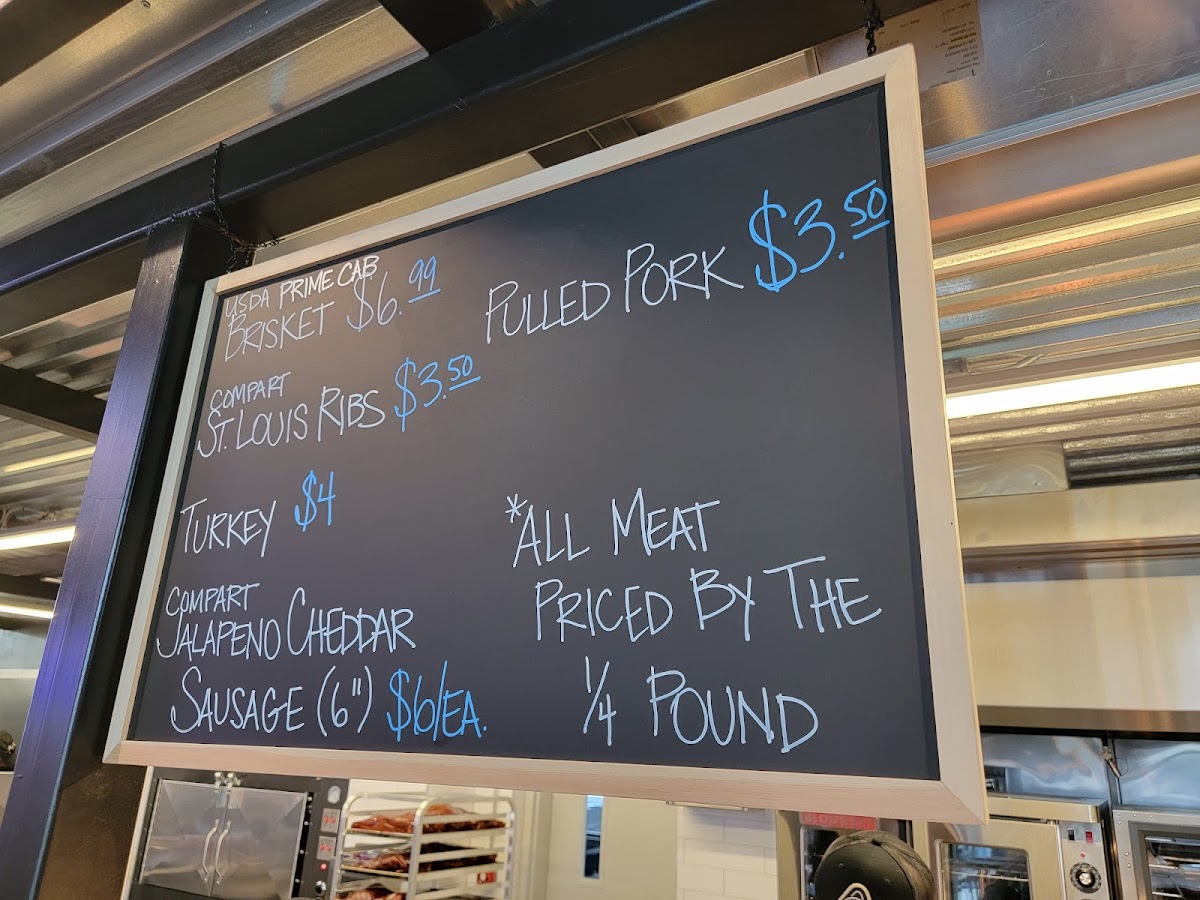 USDA PRIME CAB
BRISKET $6.99
COMPART
ST. LOUIS RIBS $3.50
TURKEY $4
COMPART
JALAPENO CHEDDAR
SAUSAGE (6") $6/EA.
PULLED PORK $3.50
*ALL MEAT
PRICED BY THE
1/4 POUND